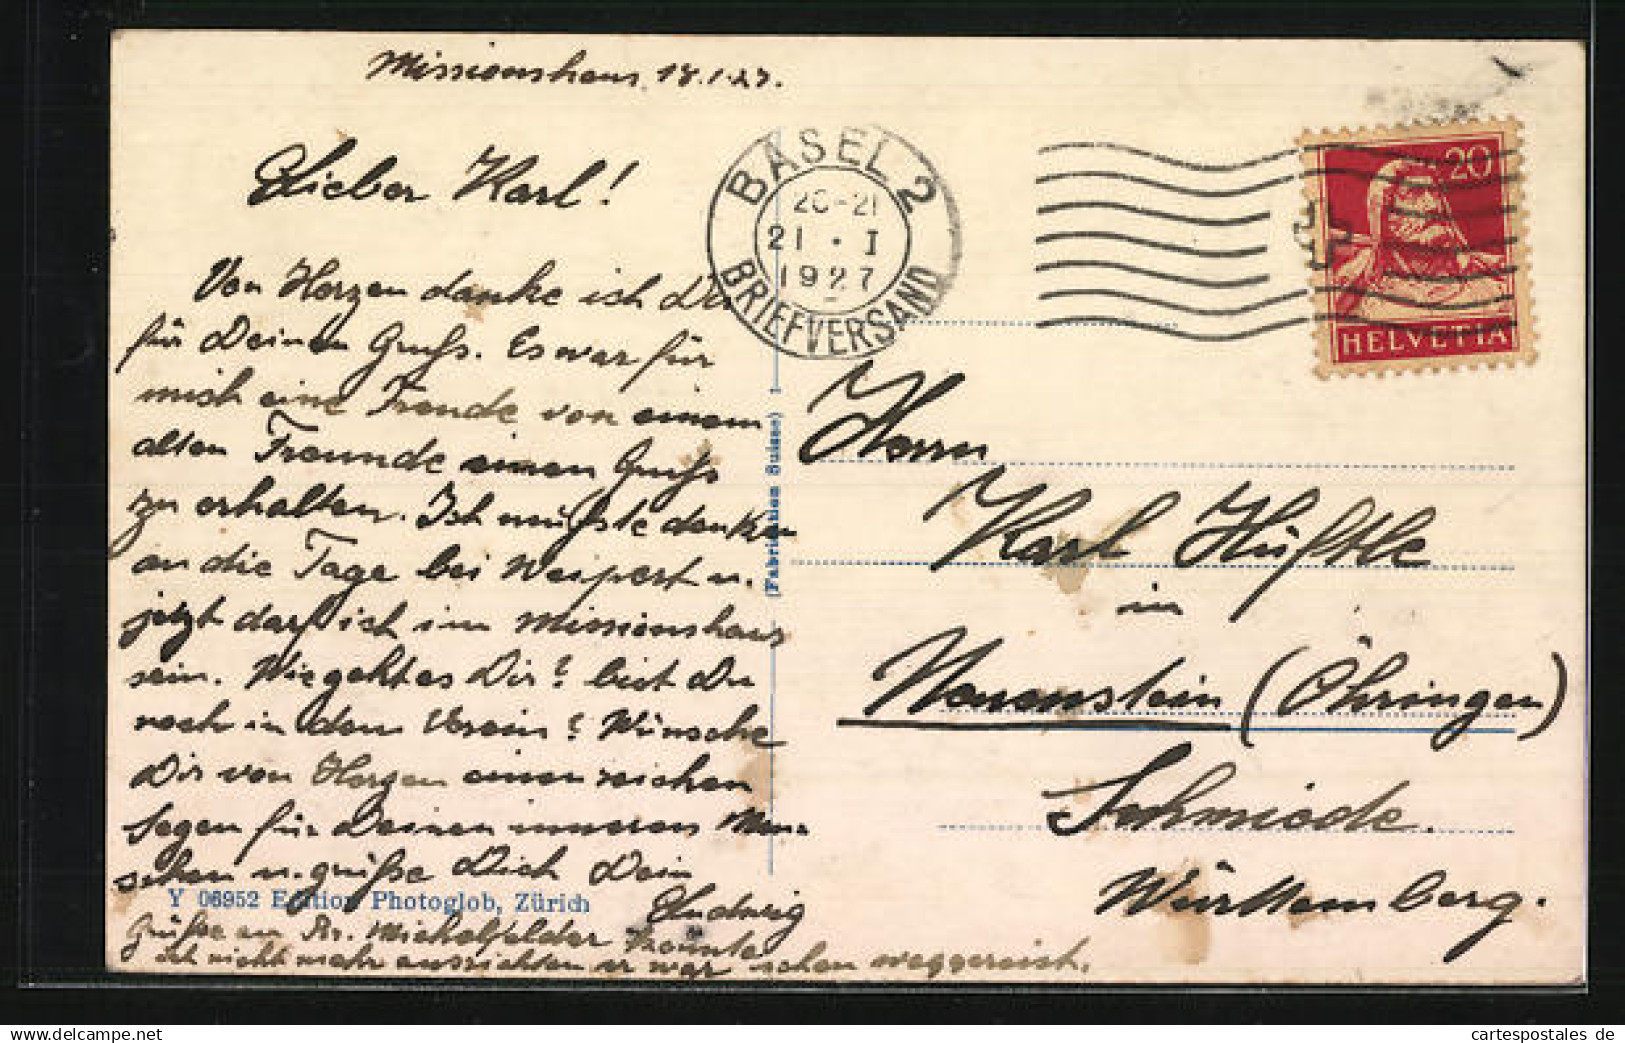 Missionshaus, 18.1.27.
Lieber Karl!
Von Herzen danke ich Dir
für Deinen Gruß. Es war für
mich eine Freude von einem
alten Freunde einen Gruß
zu erhalten. Ich mußte denken
an die Tage bei Weipert u.
jetzt darf ich im Missionshaus
sein. Wie geht es Dir? bist Du
noch in dem Verein? Wünsche
Dir von Herzen einen reichen
Segen für Deinen inneren Men-
schen u. grüße Dich Dein
Ludwig
Grüße an Br. Michelfelder konnte
ich nicht mehr ausrichten er war schon weggereist.
Y 06952 Edition Photoglob, Zürich
(Fabrication Suisse) 1
BASEL 2
20-21
21 · I
1927
BRIEFVERSAND
20
HELVETIA
Herrn
Karl Hüftle
in
Neuenstein (Öhringen)
Schmiede.
Württemberg.
cartespostales de